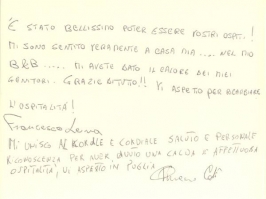 È STATO BELLISSIMO POTER ESSERE VOSTRI OSPITI!
MI SONO SENTITO VERAMENTE A CASA MIA..... NEL MIO
B&B..... MI AVETE DATO IL CALORE DEI MIEI
GENITORI. GRAZIE DI TUTTO!! VI ASPETTO PER RICAMBIARE
L'OSPITALITÀ!
Francesco
MI UNISCO AL CORALE E CORDIALE SALUTO E PERSONALE
RICONOSCENZA PER AVER AVUTO UNA CALDA E AFFETTUOSA
OSPITALITÀ, VI ASPETTO IN PUGLIA